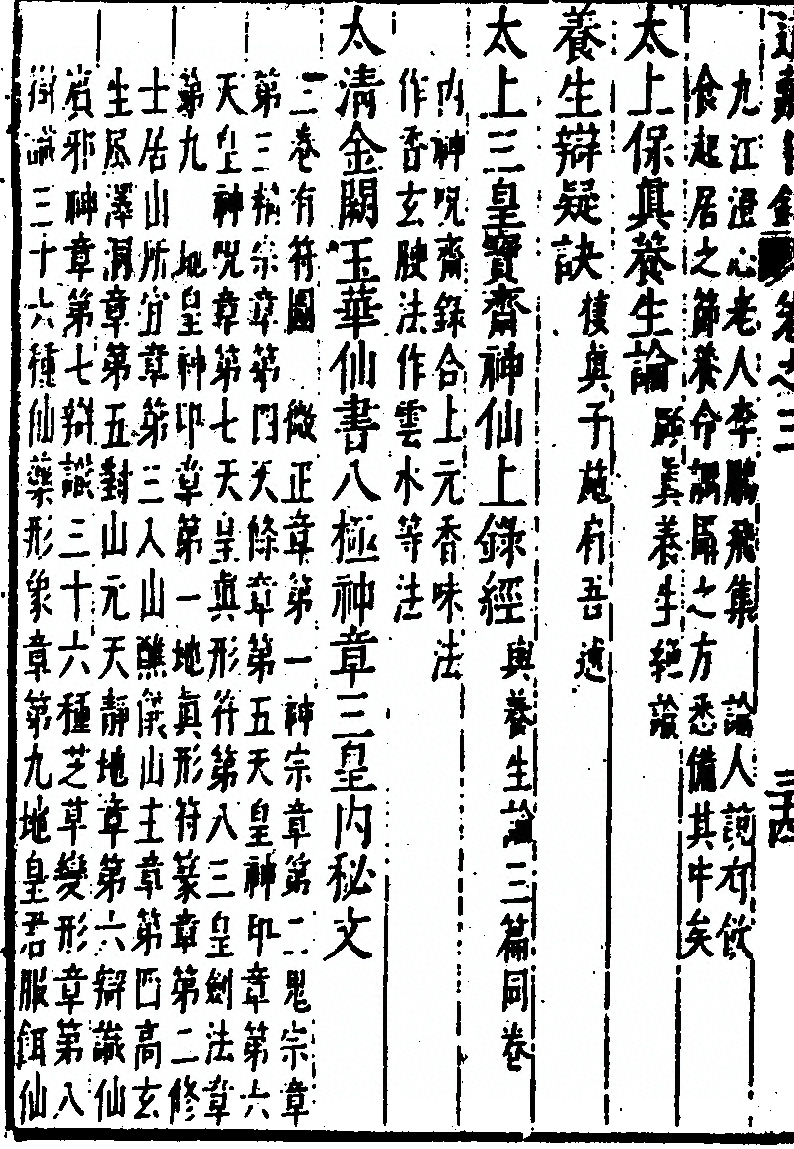 九江澄心老人李鵬飛集 論人說有飲
食起居之節養命調攝之方悉備其中矣
太上保真養生論 歸真養生絕論
養生辯疑訣 棲真子施肩吾述
太上三皇寶齋神仙上錄經 與養生論三篇同卷
內神呪齋錄合上元香味法
作香玄腴法作雲水等法
太清金闕玉華仙書八極神章三皇內秘文
三卷有符圖 微正章第一神宗章第二鬼宗章
第三精宗章第四天條章第五天皇神印章第六
天皇神呪章第七天皇真形符第八三皇劍法章
第九 地皇神印章第一地真形符篆章第二修
士居山所宜章第三入山醮儀山主章第四高玄
生居澤洞章第五對山元天靜地章第六辯識仙
賓邪神章第七辯識三十六種芝草變形章第八
辯識三十六種仙藥形象章第九地皇君服餌仙